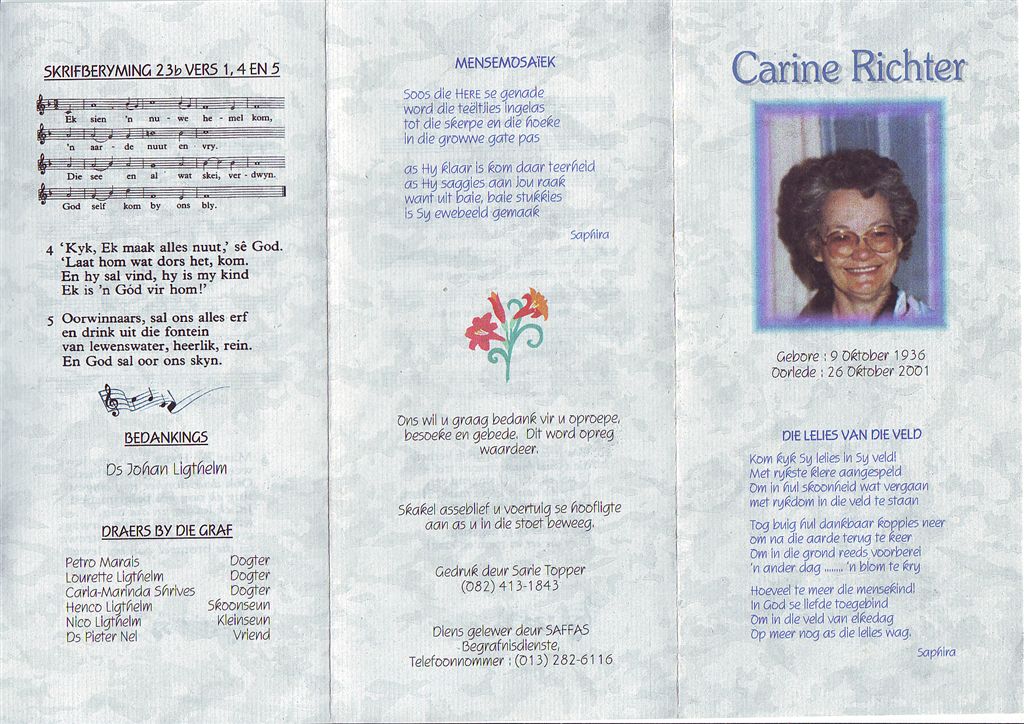 SKRIFBERYMING 23b VERS 1, 4 EN 5
Ek sien 'n nu - we he - mel kom,
'n aar - de nuut en vry.
Die see en al wat skei, ver - dwyn.
God self kom by ons bly.
4 'Kyk, Ek maak alles nuut,' sê God.
'Laat hom wat dors het, kom.
En hy sal vind, hy is my kind
Ek is 'n Gód vir hom!'
5 Oorwinnaars, sal ons alles erf
en drink uit die fontein
van lewenswater, heerlik, rein.
En God sal oor ons skyn.
BEDANKINGS
Ds Johan Ligthelm
DRAERS BY DIE GRAF
Petro Marais Dogter
Lourette Ligthelm Dogter
Carla-Marinda Shrives Dogter
Henco Ligthelm Skoonseun
Nico Ligthelm Kleinseun
Ds Pieter Nel Vriend
MENSEMOSAÏEK
Soos die HERE se genade
word die teëltjies ingelas
tot die skerpe en die hoeke
in die growwe gate pas
as Hy klaar is kom daar teerheid
as Hy saggies aan jou raak
want uit baie, baie stukkies
is Sy ewebeeld gemaak
Saphira
Ons wil u graag bedank vir u oproepe,
besoeke en gebede. Dit word opreg
waardeer.
Skakel asseblief u voertuig se hoofligte
aan as u in die stoet beweeg.
Gedruk deur Sarie Topper
(082) 413-1843
Diens gelewer deur SAFFAS
Begrafnisdienste,
Telefoonnommer : (013) 282-6116
Carine Richter
Gebore : 9 Oktober 1936
Oorlede : 26 Oktober 2001
DIE LELIES VAN DIE VELD
Kom kyk Sy lelies in Sy veld!
Met rykste klere aangespeld
Om in hul skoonheid wat vergaan
met rykdom in die veld te staan
Tog buig hul dankbaar koppies neer
om na die aarde terug te keer
Om in die grond reeds voorberei
'n ander dag ........ 'n blom te kry
Hoeveel te meer die mensekind!
In God se liefde toegebind
Om in die veld van elkedag
Op meer nog as die lelies wag.
Saphira